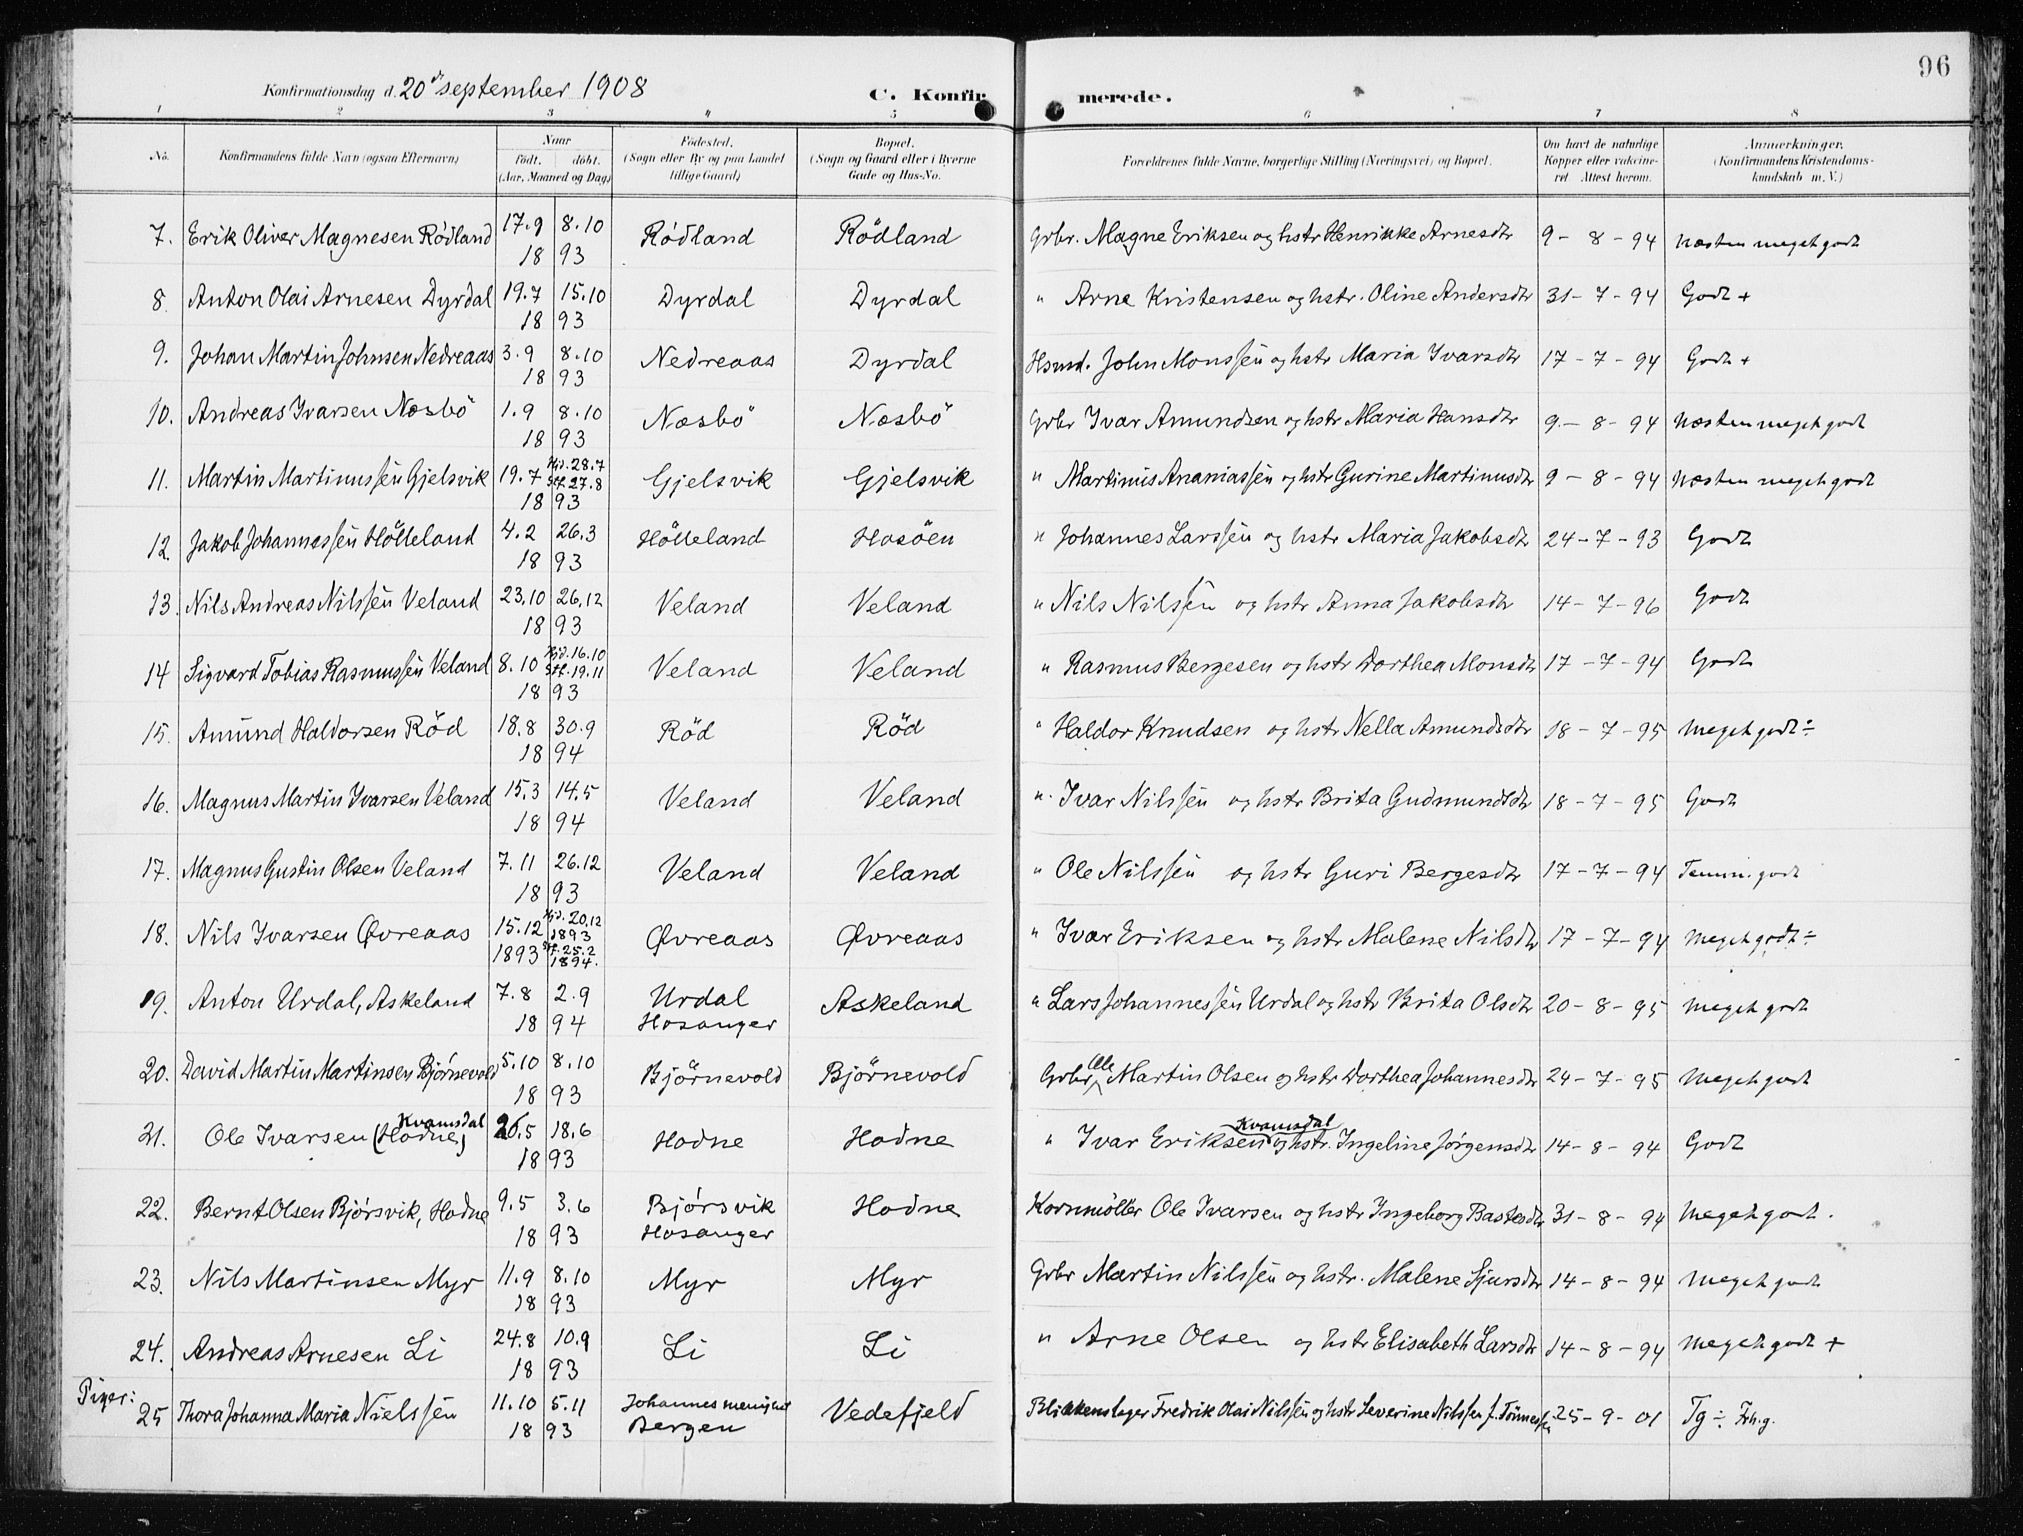 96
Konfirmationsdag d. 20de september 1908 C. Konfirmerede.
1 2 3 4 5 6 7 8
No. Konfirmandens fulde Navn (ogsaa Efternavn) Naar født. døbt. (Aar, Maaned og Dag) Fødested. (Sogn eller By og paa Landet tillige Gaard) Bopæl. (Sogn og Gaard eller i Byerne Gade og Hus-No. Forældrenes fulde Navne, borgerlige Stilling (Næringsvei) og Bopæl. Om havt de naturlige Kopper eller vakcineret Attest herom. Anmærkninger. (Konfirmandens Kristendomskundskab m. V.)
7. Erik Oliver Magnesen Rödland 17.9 8.10 Rödland Rödland Grbr. Magne Eriksen og hstr Henrikke Arnesdtr 9 - 8 - 94 Næsten meget godt
18 93
8 Anton Olai Arnesen Dyrdal 19.7 15.10 Dyrdal Dyrdal " Arne Kristensen og hstr. Oline Andersdtr 31 - 7 - 94 Godt +
18 93
9. Johan Martin Johnsen Nedreaas 3.9 8.10 Nedreaas Dyrdal Hsmd. John Monssen og hstr Maria Ivarsdtr 17 - 7 - 94 Godt +
18 93
10. Andreas Ivarsen Næsbö 1.9 8.10 Næsbö Næsbö Grbr Ivar Amundsen og hstr Maria Hansdtr 9 - 8 - 94 Næsten meget godt
18 93
11. Martin Martinussen Gjelsvik 19.7 Hjd. 28.7 Stf. 27.8 Gjelsvik Gjelsvik " Martinus Ananiassen og hstr Gurine Martinusdtr 9 - 8 - 94 Næsten meget godt
18 93
12. Jakob Johannessen Hölleland 4.2 26.3 Hölleland Hosöen " Johannes Larssen og hstr Maria Jakobsdtr 24 - 7 - 93 Godt
18 93
13. Nils Andreas Nilssen Veland 23.10 26.12 Veland Veland " Nils Nilssen og hstr Anna Jakobsdtr 14 - 7 - 96 Godt
18 93
14 Sigvard Tobias Rasmussen Veland 8.10 Hjd. 16.10 Stf. 19.11 Veland Veland " Rasmus Bergesen og hstr Dorthea Monsdtr 17 - 7 - 94 Godt
18 93
15. Amund Haldorsen Röd 18.8 30.9 Röd Röd " Haldor Knudsen og hstr Nella Amundsdtr 18 - 7 - 95 Meget godt ÷
18 94
16. Magnus Martin Ivarsen Veland 15.3 14.5 Veland Veland " Ivar Nilssen og hstr Brita Gudmundsdtr 18 - 7 - 95 Godt
18 94
17. Magnus Gustin Olsen Veland 7.11 26.12 Veland Veland " Ole Nilssen og hstr Guri Bergesdtr 17 - 7 - 94 Temm. godt
18 93
18. Nils Ivarsen Øvreaas 15.12 1893 Hjd. 20.12 1893 Stf. 25.2 1894. Øvreaas Øvreaas " Ivar Eriksen og hstr Malene Nilsdtr 17 - 7 - 94 Meget godt ÷
19. Anton Urdal, Askeland 7.8 2.9 Urdal Hosanger Askeland " Lars Johannessen Urdal og hstr Brita Olsdtr 20 - 8 - 95 Meget godt
18 94
20. David Martin Martinsen Björnevold 5.10 8.10 Björnevold Björnevold Grbr Ole Martin Olsen og hstr Dorthea Johannesdtr 24 - 7 - 95 Meget godt
18 93
21. Ole Ivarsen (Hodne) Kvamsdal 26.5 18.6 Hodne Hodne " Ivar Eriksen Kvamsdal og hstr. Ingeline Jørgensdtr 14 - 8 - 94 Godt
18 93
22. Bernt Olsen Bjørsvik, Hodne 9.5 3.6 Bjørsvik Hosanger Hodne Kornmöller Ole Ivarsen og hstr Ingeborg 31 - 8 - 94 Meget godt.
18 93
23. Nils Martinsen Myr 11.9 8.10 Myr Myr Grbr Martin Nilssen og hstr. Malene Sjursdtr 14 - 8 - 94 Meget godt
18 93
24. Andreas Arnesen Li 24.8 10.9 Li Li " Arne Olsen og hstr Elisabeth Larsdtr 14 - 8 - 94 Meget godt +
18 93
Piger:
25 Thora Johanna Maria Nielssen 11.10 5.11 Johannes menighed Bergen Vedefjeld Blikkenslager Fredrik Olai Nilssen og hstr Severine Nilssen f. Tönnessen 25 - 9 - 01 Tg ÷ Frh.g.
18 93